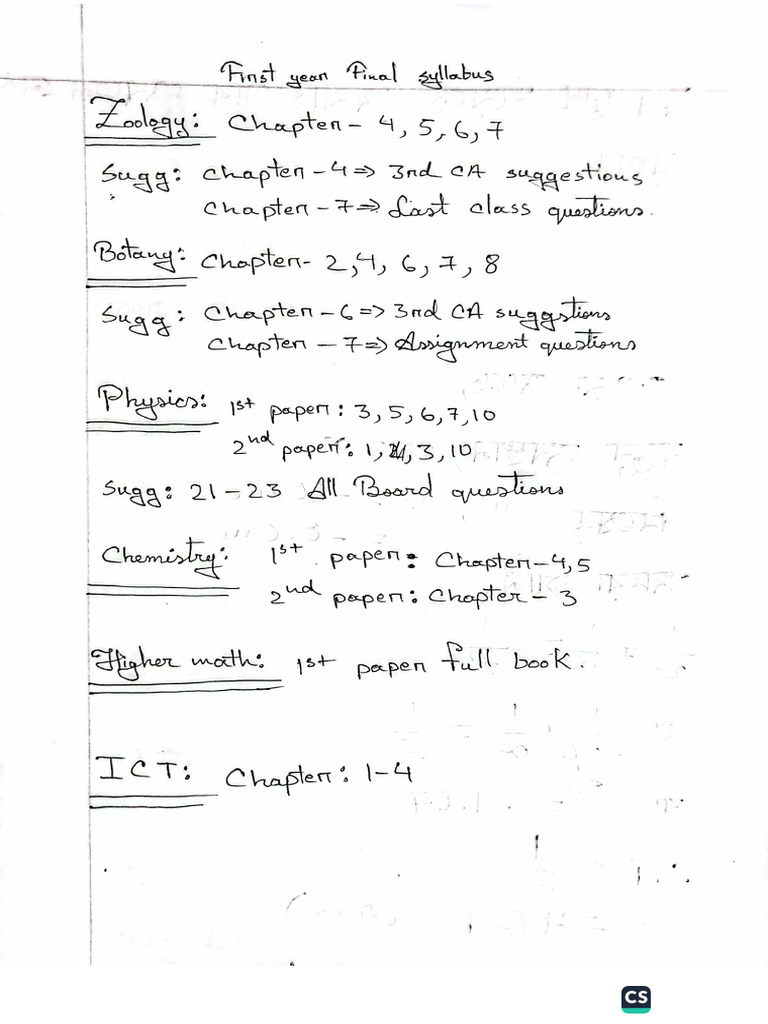 First year Final syllabus
Zoology: Chapter - 4, 5, 6, 7
Sugg: chapter - 4 => 3rd CA suggestions
Chapter - 7 => Last class questions.
Botany: Chapter- 2, 4, 6, 7, 8
Sugg: Chapter - 6 => 3rd CA suggstions
Chapter - 7 => Assignment questions
Physics: 1st paper: 3, 5, 6, 7, 10
2nd paper: 1, 3, 10
Sugg: 21 - 23 All Board questions
Chemistry: 1st paper: Chapter - 4, 5
2nd paper: Chapter - 3
Higher math: 1st paper full book.
ICT: Chapter: 1-4
CS